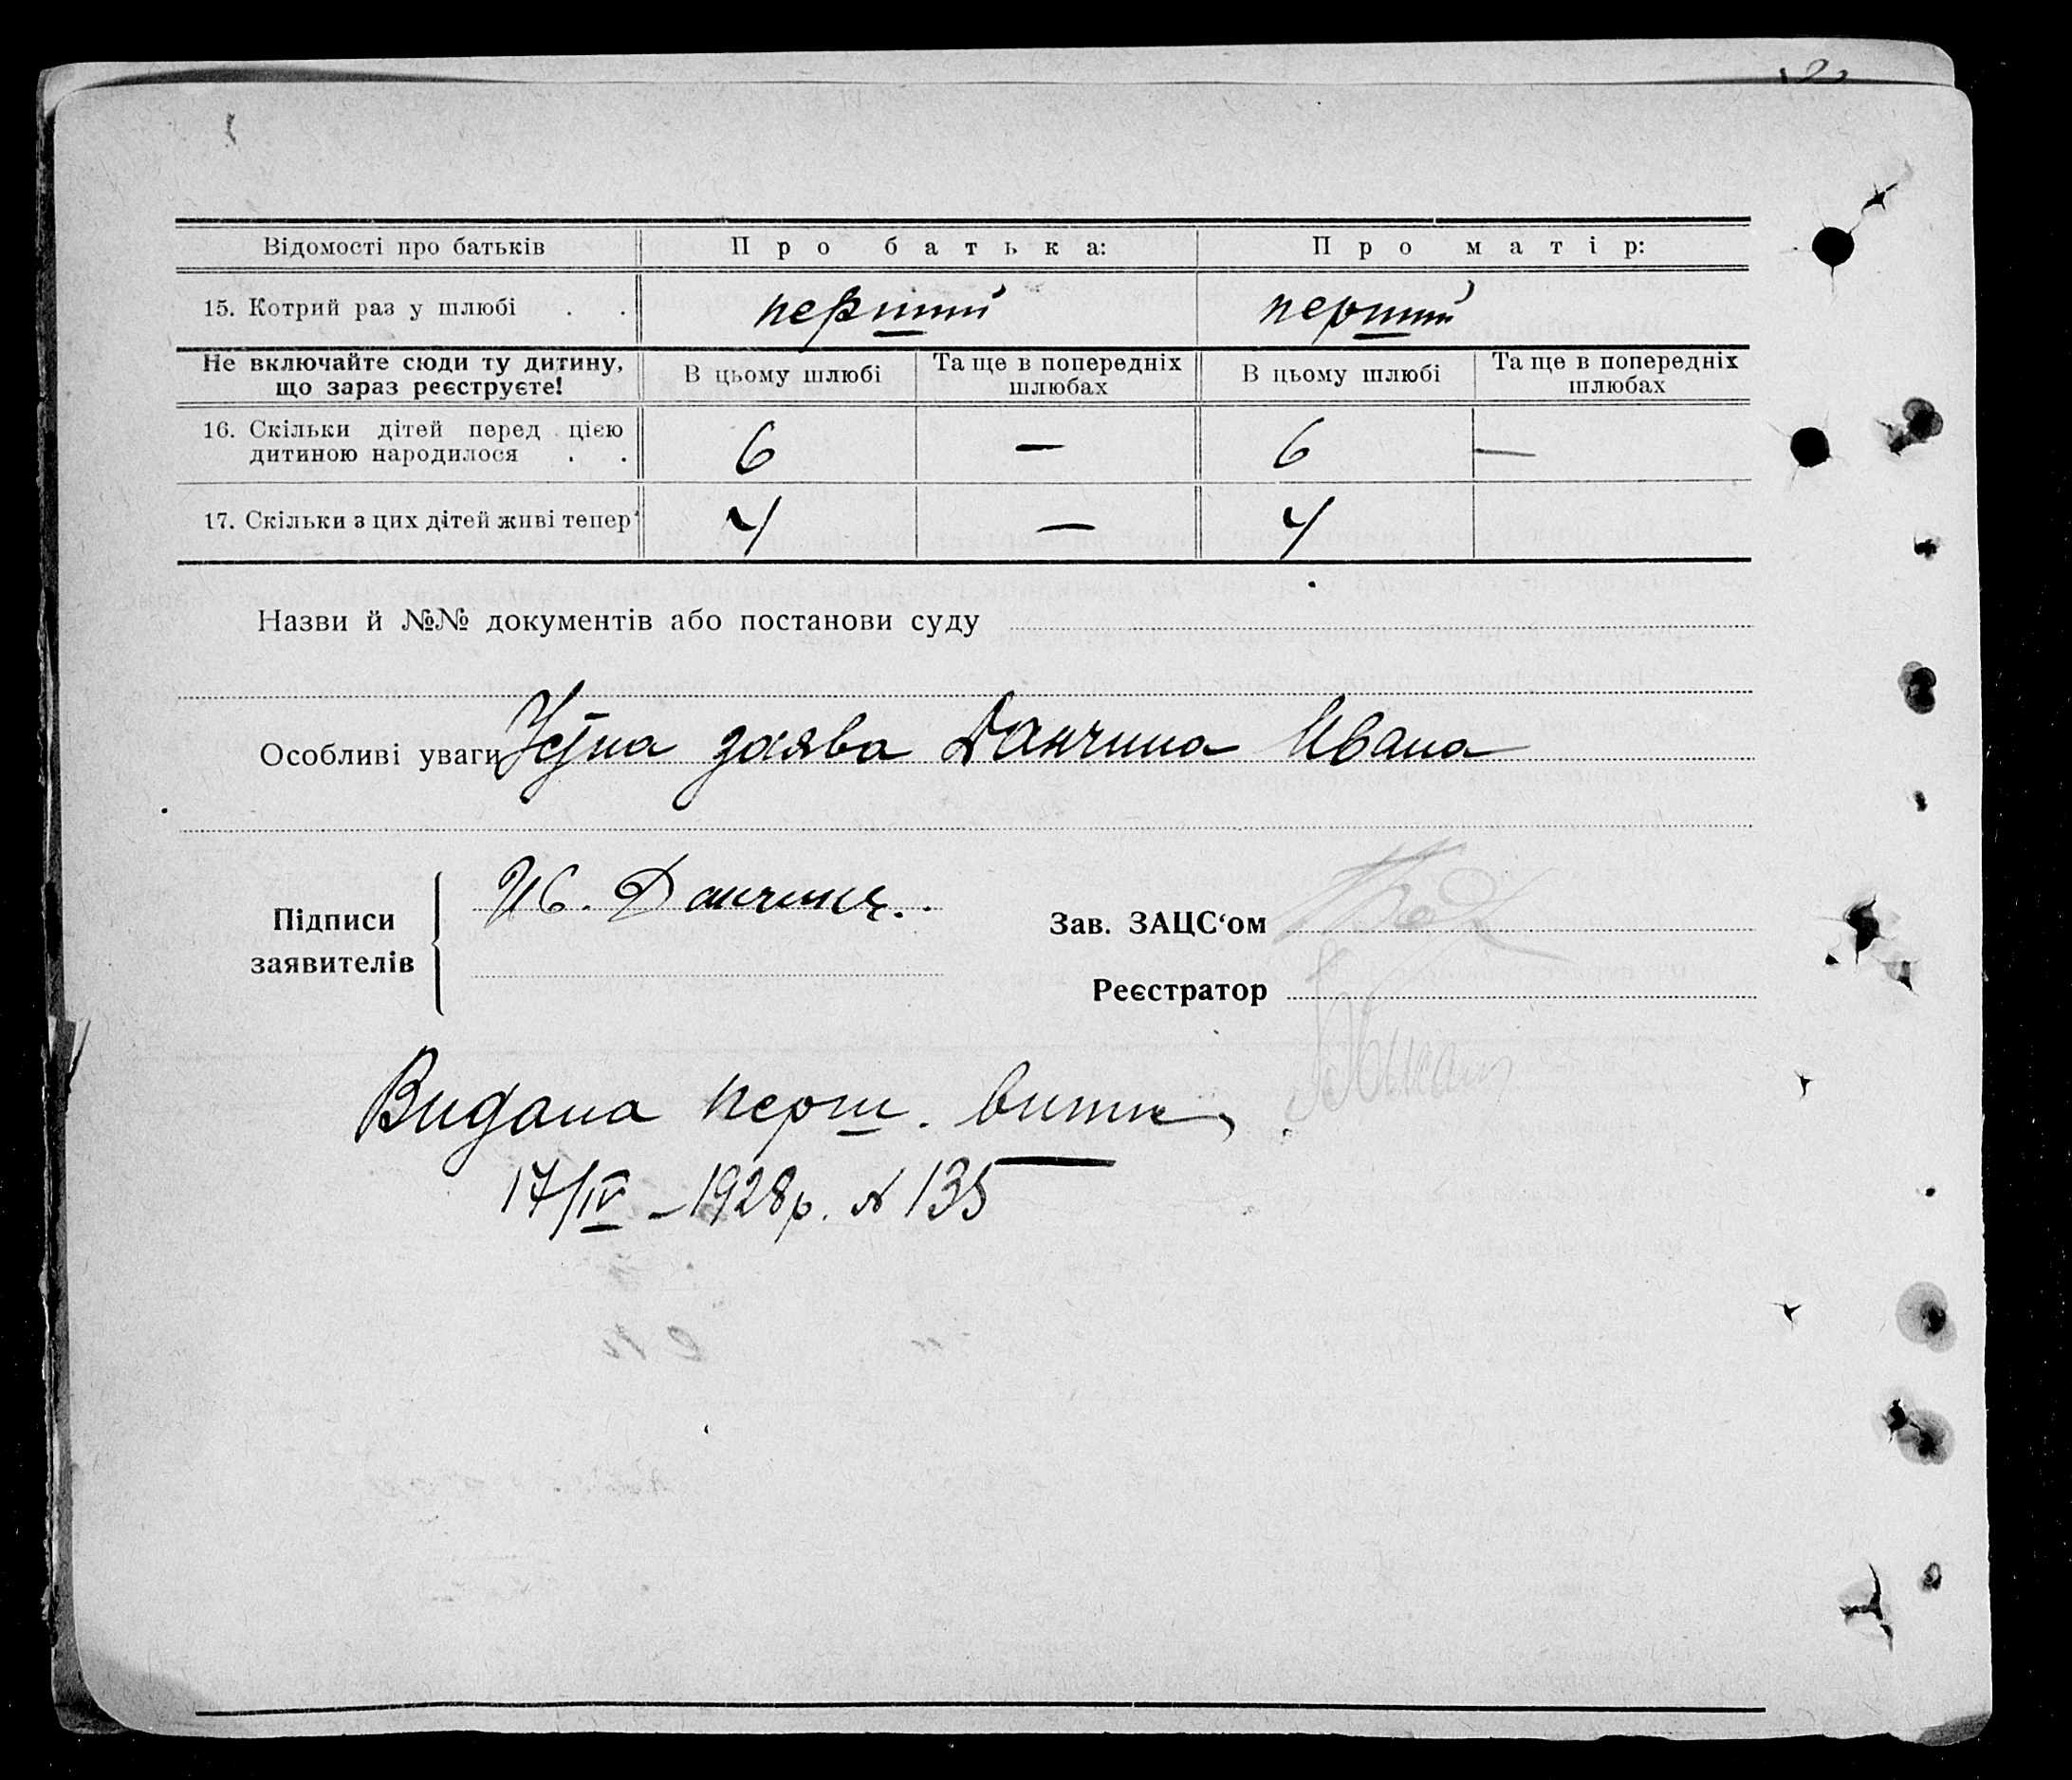 Відомості про батьків Про батька: Про матір:
15. Котрий раз у шлюбі . . перший перший
Не включайте сюди ту дитину, що зараз реєструєте! В цьому шлюбі Та ще в попередніх шлюбах В цьому шлюбі Та ще в попередніх шлюбах
16. Скільки дітей перед цією дитиною народилося . . 6 — 6 —
17. Скільки з цих дітей живі тепер 4 — 4
Назви й №№ документів або постанови суду
Особливі уваги Устна заява Данчина Ивана
Підписи заявителів
Ив. Данчин
Зав. ЗАЦС‘ом
Реєстратор
Видана перш. випис
17/IV – 1928 р. № 135